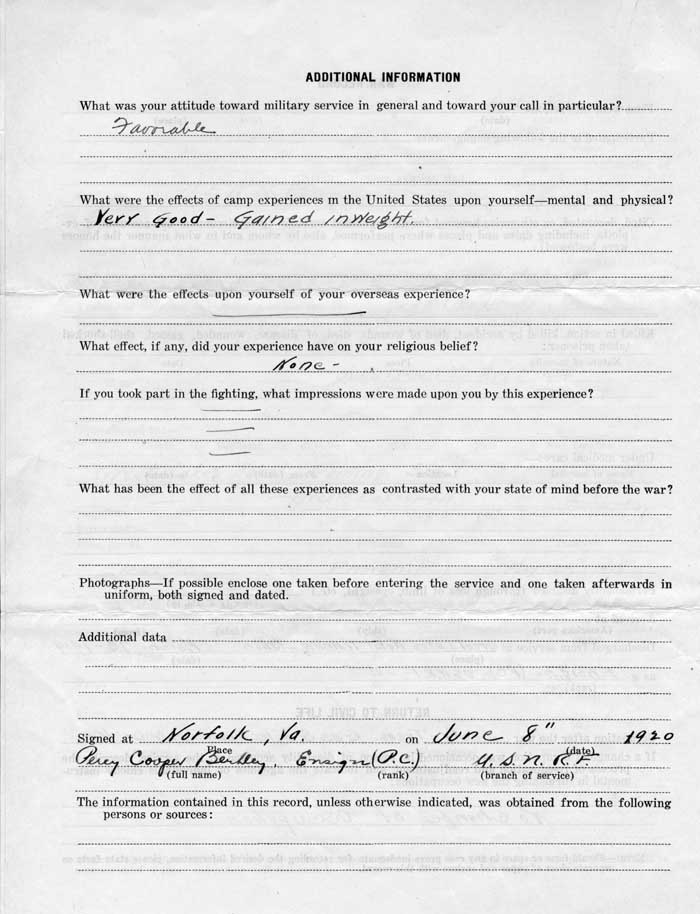 ADDITIONAL INFORMATION
What was your attitude toward military service in general and toward your call in particular?
Favorable
What were the effects of camp experiences m the United States upon yourself—mental and physical?
Very Good - Gained in Weight.
What were the effects upon yourself of your overseas experience?
What effect, if any, did your experience have on your religious belief?
None -
If you took part in the fighting, what impressions were made upon you by this experience?
What has been the effect of all these experiences as contrasted with your state of mind before the war?
Photographs—If possible enclose one taken before entering the service and one taken afterwards in
uniform, both signed and dated.
Additional data
Signed at Norfolk, Va. on June 8" 1920
Place (date)
Percy Cooper Ensign (P.C.) U.S.N.R.F.
(full name) (rank) (branch of service)
The information contained in this record, unless otherwise indicated, was obtained from the following
persons or sources: